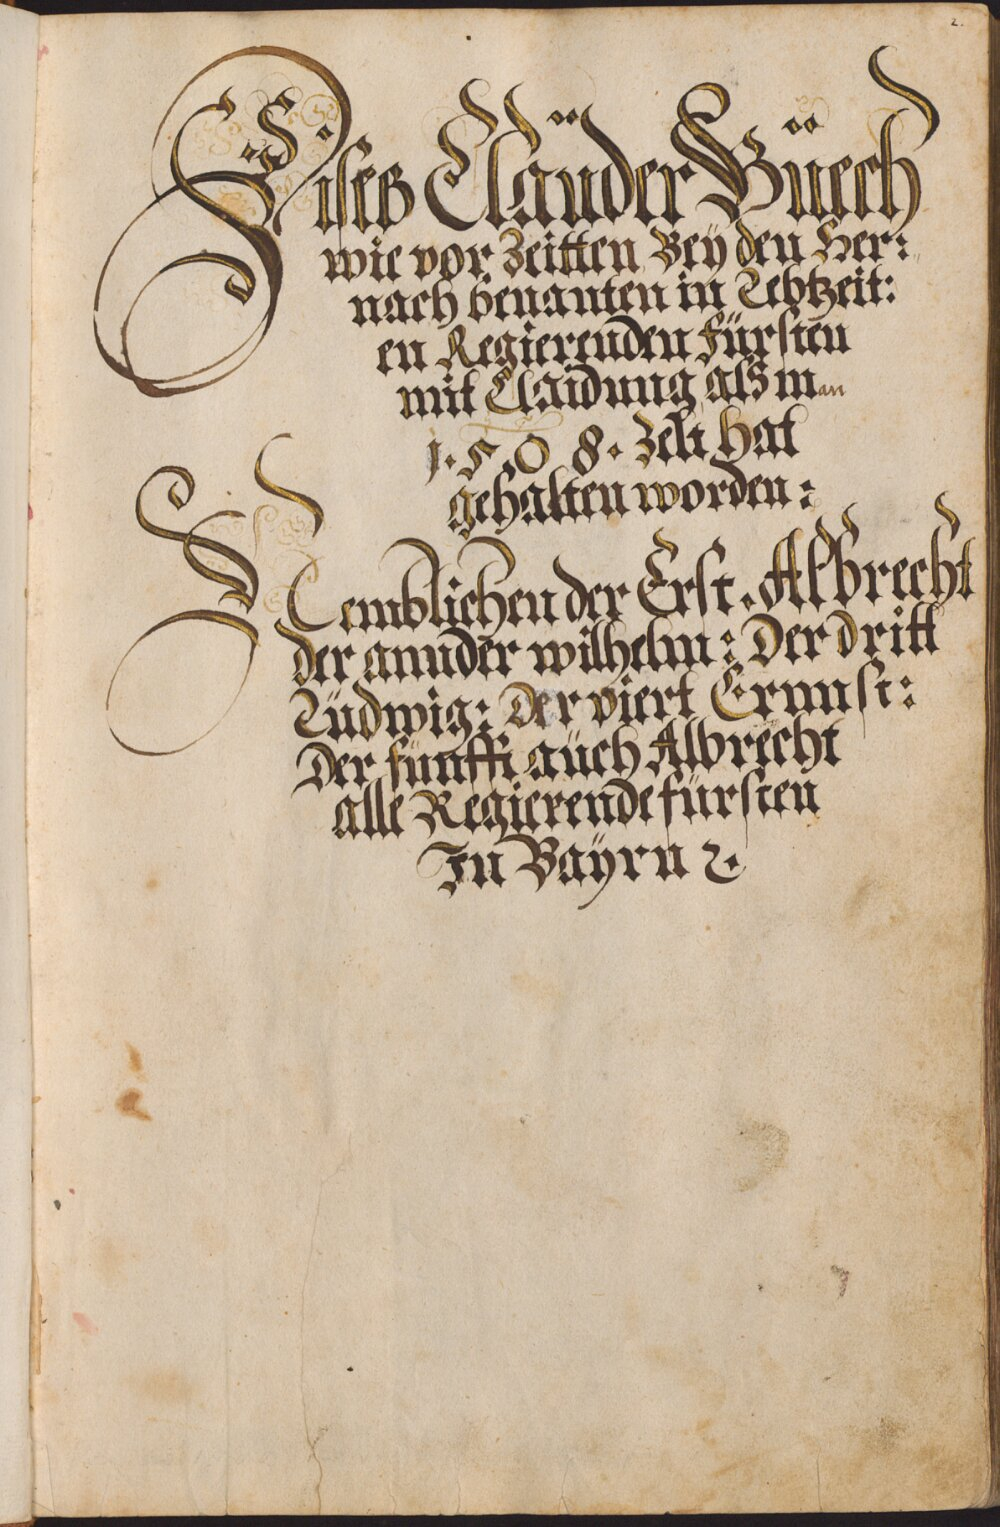 2.
Dises Claüder Büech
wie vor Zeitten Beÿ den Her:
nach benanten in Lebtzeit:
en Regierenden fürsten
mit Claidung als man
1.5.0 8. Zelt hat
gehalten worden:
Nemblichen der Erst. Albrecht
der annder wilhelm: Der dritt
Lüdwig: Der viert Ernnst:
Der fünfft aüch Albrecht
alle Regierende fürsten
In Baÿrn ꝛ.